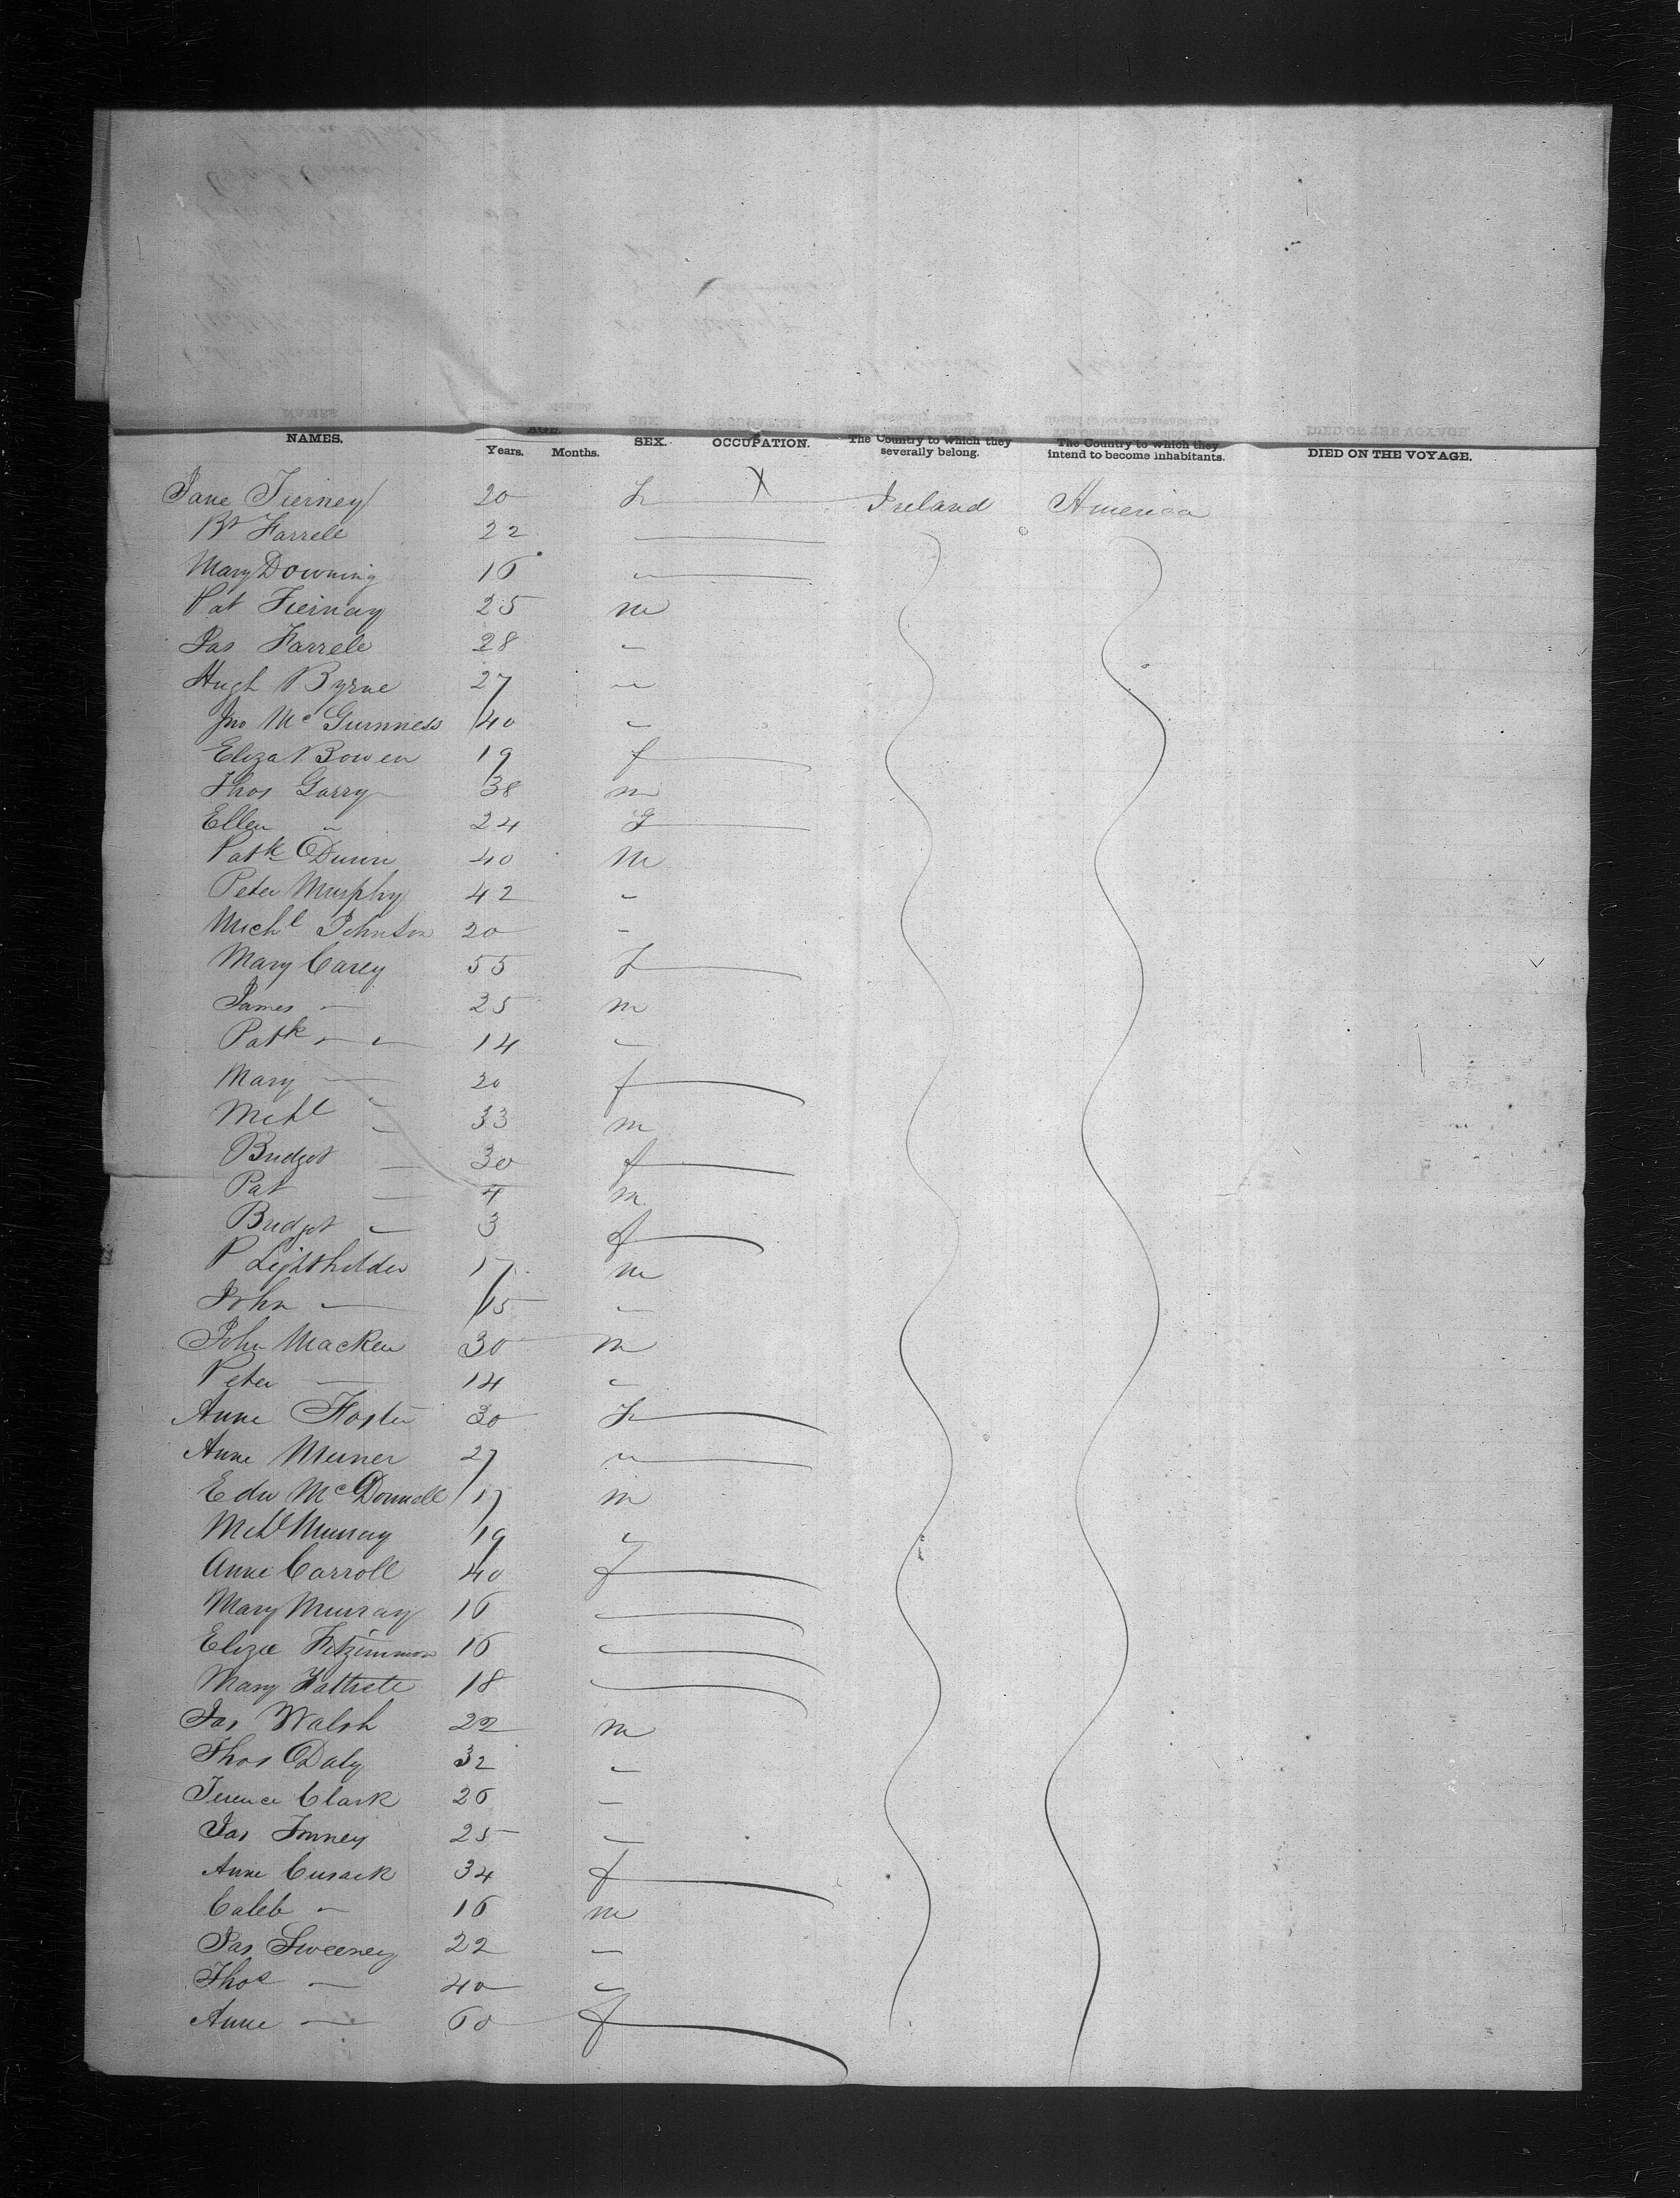 NAMES. AGE. Years. Months. SEX. OCCUPATION. The Country to which they severally belong. The Country to which they intend to become inhabitants. DIED ON THE VOYAGE.
Jane Tierney 20 f X Ireland America
Bt Farrell 22
Mary Downing 16 "
Pat Tiernay 25 m
Jas Farrell 28 "
Hugh Byrne 27 "
Jno Mc Guinness 40 "
Eliza Bowen 19 f
Thos Garry 38 m
Ellen " 24 f
Patk O Dunn 40 m
Peter Murphy 42 "
Michl Johnston 20 "
Mary Carey 55 f
James " 25 m
Patk " " 14 "
Mary " 20 f
Mchl " 33 m
Bridget " 30 f
Pat " 4 m
Bridget " 3 f
P Lightholder 17 m
John " 15 "
John Macken 30 m
Peter " 14 "
Anne Foster 30 f
Anne 27 "
Edw Mc Donnell 17 m
Mchl Murray 19 "
Anne Carroll 40 f
Mary Murray 16 "
Eliza Fitzimmon 16 "
Mary 18 "
Jas Walsh 22 m
Thos O Daly 32 "
Terence Clark 26 "
Jas 25 "
Anne Cusack 34 f
Caleb " 16 m
Jas Sweeney 22 "
Thos " 40 "
Anne " 60 f